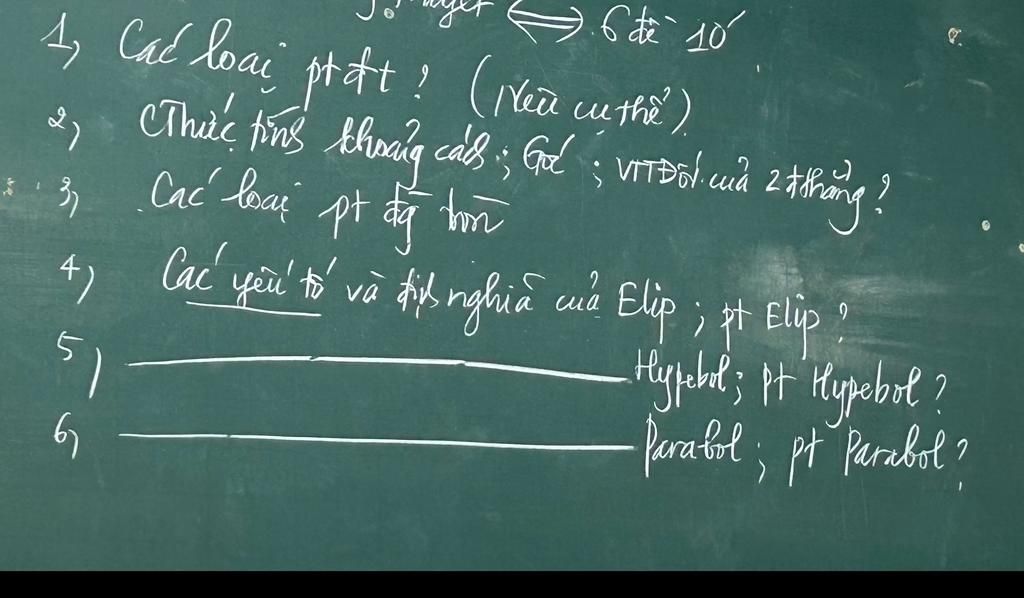 ⟺ 6 đề 10
1, Các loại pt đt ? (Nêu cụ thể)
2, CThức tính khoảng cách ; Góc ; VTTĐối của 2 đthẳng ?
3, Các loại pt đg tròn
4) Các yếu tố và định nghĩa của Elip ; pt Elip ?
5) Hypebol ; pt Hypebol ?
6, Parabol ; pt Parabol ?